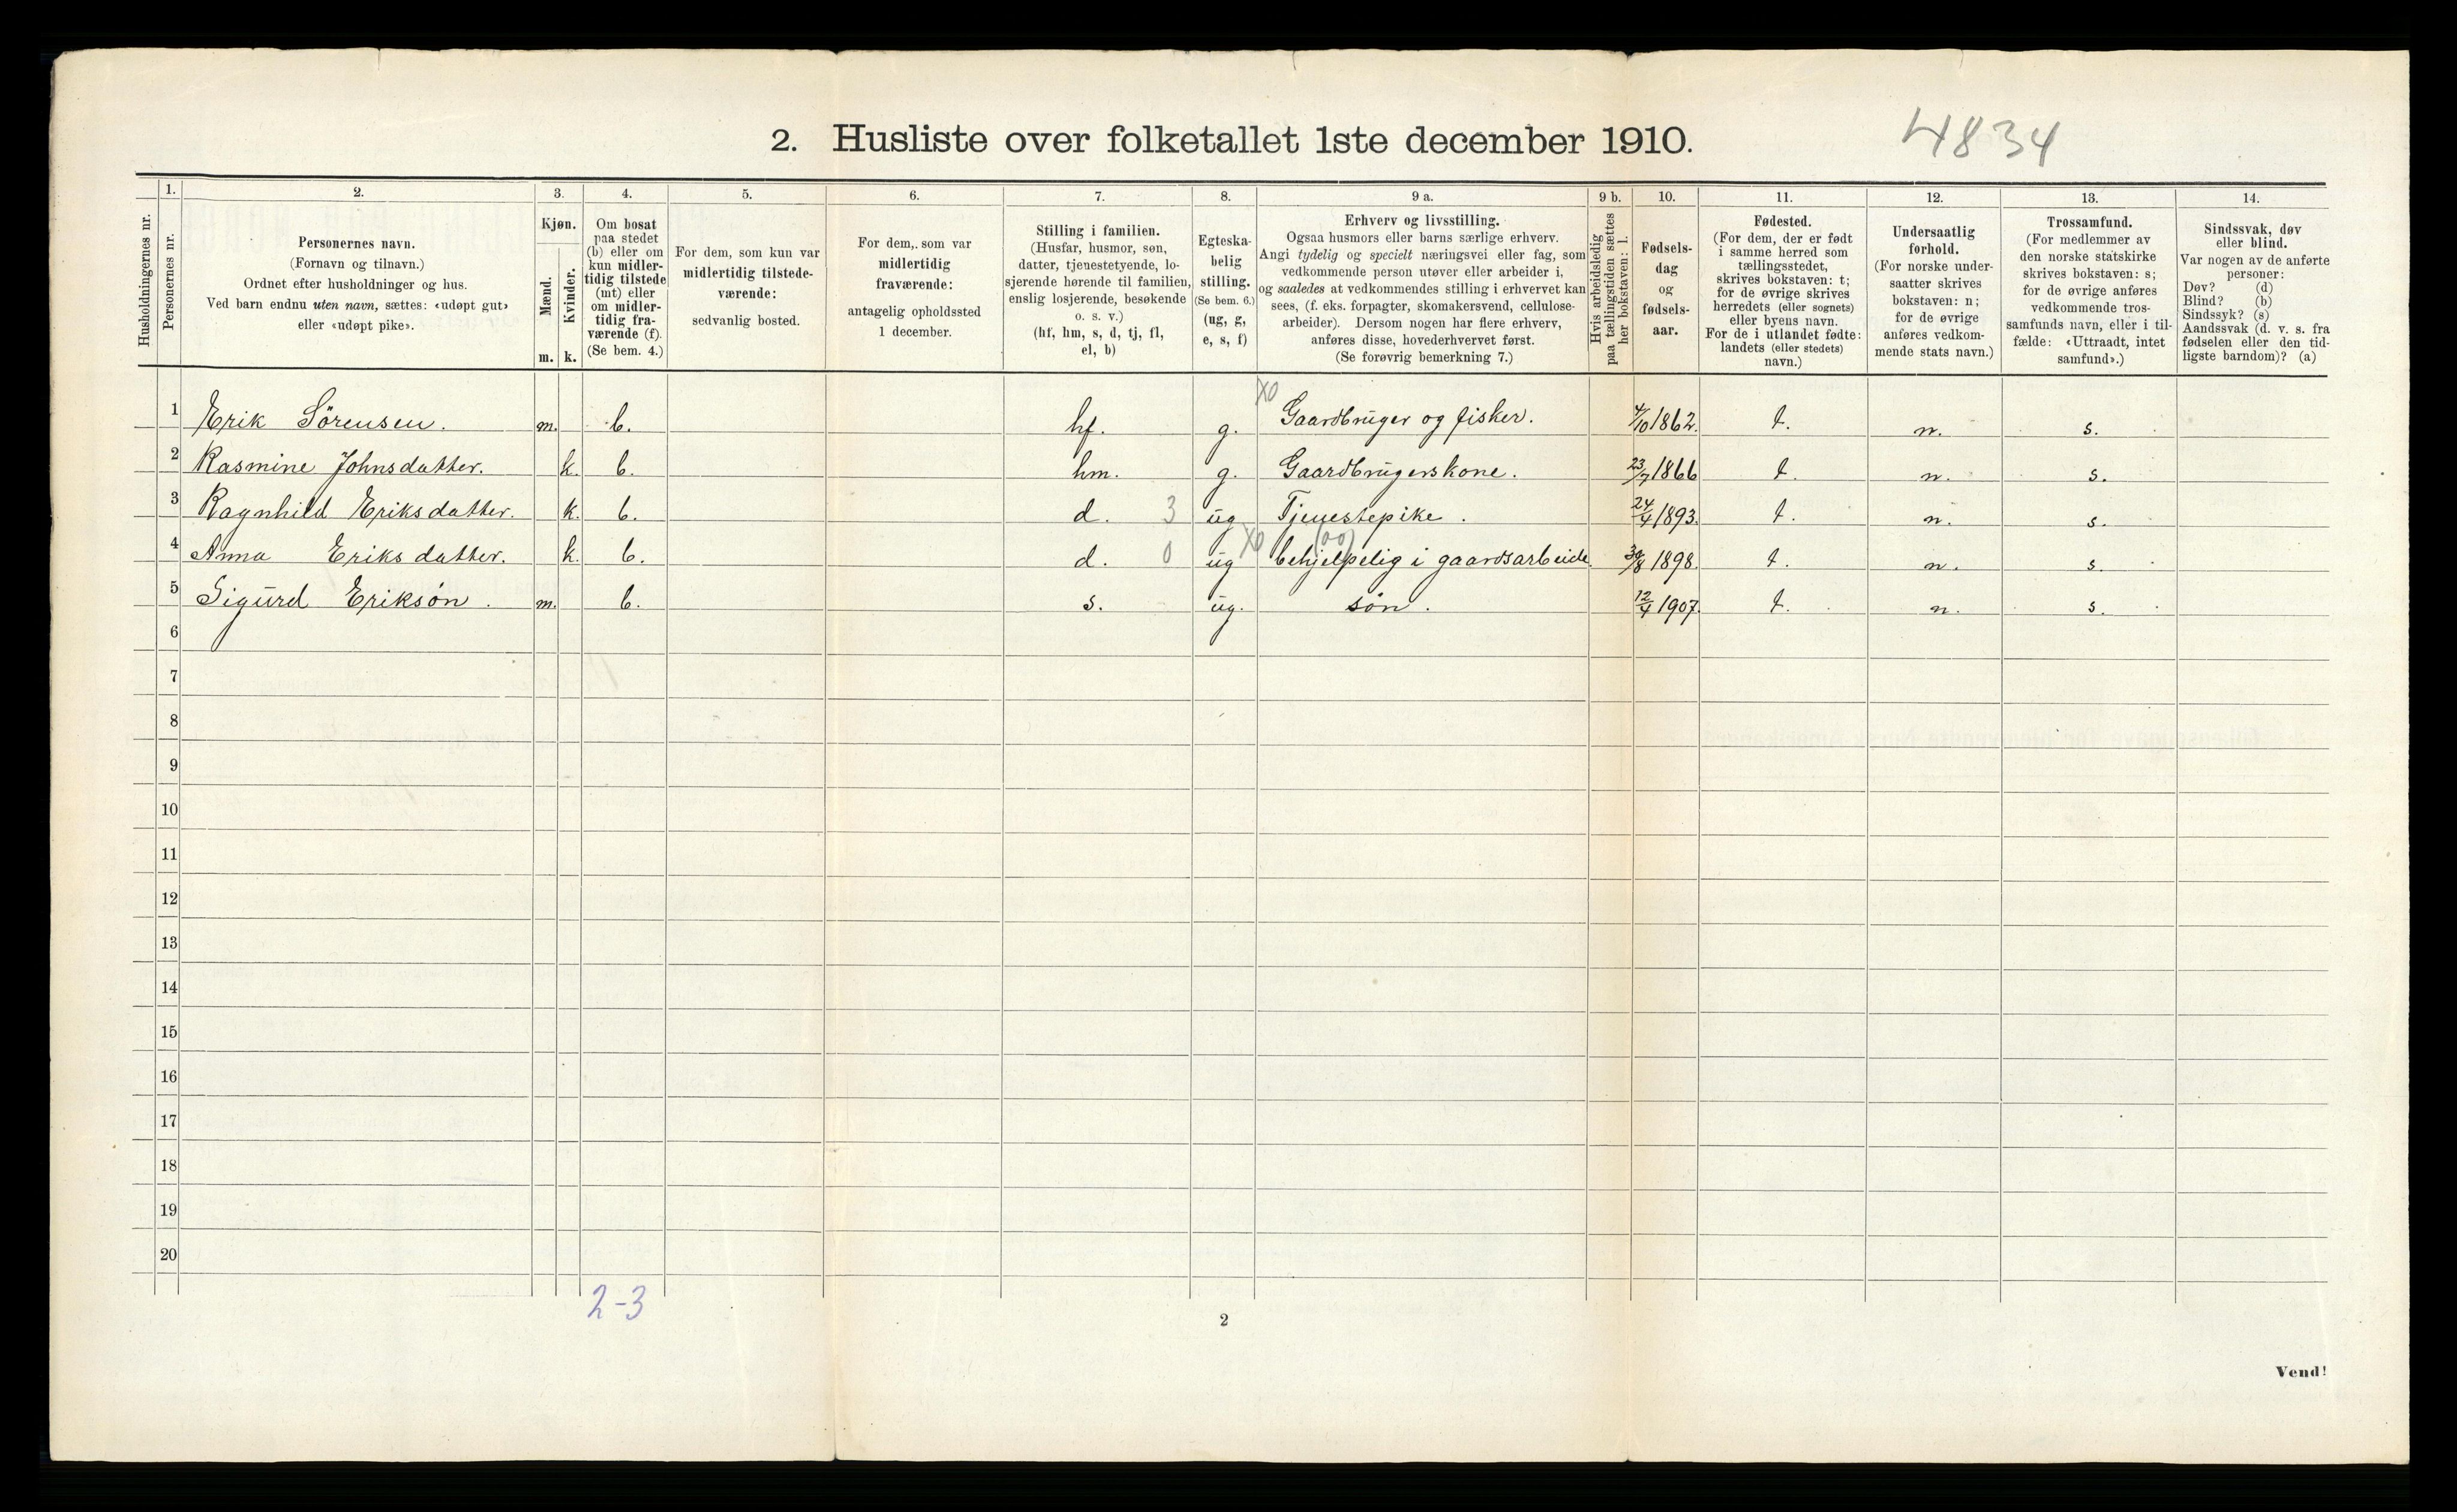 2. Husliste over folketallet 1ste december 1910.
4834
Husholdningernes nr.
1.
Personernes nr.
2.
Personernes navn.
(Fornavn og tilnavn.)
Ordnet efter husholdninger og hus.
Ved barn endnu uten navn, sættes: «udøpt gut»
eller «udøpt pike».
3.
Kjøn.
Mænd.
Kvinder.
m. k.
4.
Om bosat
paa stedet
(b) eller om
kun midler-
tidig tilstede
(mt) eller
om midler-
tidig fra-
værende (f).
(Se bem. 4.)
5.
For dem, som kun var
midlertidig tilstede-
værende:
sedvanlig bosted.
6.
For dem, som var
midlertidig
fraværende:
antagelig opholdssted
1 december.
7.
Stilling i familien.
(Husfar, husmor, søn,
datter, tjenestetyende, lo-
sjerende hørende til familien,
enslig losjerende, besøkende
o. s. v.)
(hf, hm, s, d, tj, fl,
el, b)
8.
Egteska-
belig
stilling.
(Se bem. 6.)
(ug, g,
e, s, f)
9 a.
Erhverv og livsstilling.
Ogsaa husmors eller barns særlige erhverv.
Angi tydelig og specielt næringsvei eller fag, som
vedkommende person utøver eller arbeider i,
og saaledes at vedkommendes stilling i erhvervet kan
sees, (f. eks. forpagter, skomakersvend, cellulose-
arbeider). Dersom nogen har flere erhverv,
anføres disse, hovederhvervet først.
(Se forøvrig bemerkning 7.)
9 b.
Hvis arbeidsledig
paa tællingstiden sættes
her bokstaven: l.
10.
Fødsels-
dag
og
fødsels-
aar.
11.
Fødested.
(For dem, der er født
i samme herred som
tællingsstedet,
skrives bokstaven: t;
for de øvrige skrives
herredets (eller sognets)
eller byens navn.
For de i utlandet fødte:
landets (eller stedets)
navn.)
12.
Undersaatlig
forhold.
(For norske under-
saatter skrives
bokstaven: n;
for de øvrige
anføres vedkom-
mende stats navn.)
13.
Trossamfund.
(For medlemmer av
den norske statskirke
skrives bokstaven: s;
for de øvrige anføres
vedkommende tros-
samfunds navn, eller i til-
fælde: «Uttraadt, intet
samfund».)
14.
Sindssvak, døv
eller blind.
Var nogen av de anførte
personer:
Døv? (d)
Blind? (b)
Sindssyk? (s)
Aandssvak (d. v. s. fra
fødselen eller den tid-
ligste barndom)? (a)
X0
1 Erik Sörensen. m. b. hf. g. Gaardbruger og fisker. 4/10 1862. t. n. s.
2 Rasmine Johnsdatter. k. b. hm. g. Gaardbrugerskone. 23/7 1866 t. n. s.
3 Ragnhild Eriksdatter. k. b. d. 3 ug Tjenestepike. 24/4 1893. t. n. s.
X0 (00)
4 Anna Eriksdatter. k. b. d. 0 ug behjelpelig i gaardsarbeide. 30/8 1898. t. n. s.
5 Sigurd Eriksøn. m. b. s. ug. søn. 12/4 1907. t. n. s.
6
7
8
9
10
11
12
13
14
15
16
17
18
19
20
2-3
2
Vend!